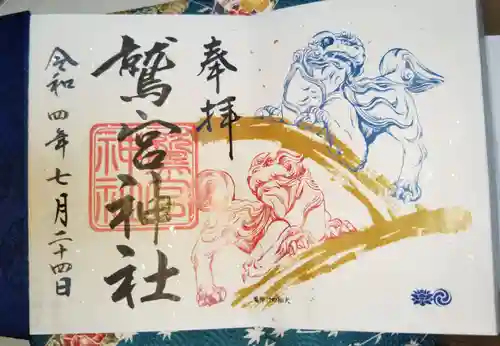 奉拝
鷲宮神社
鷲宮神社
令和四年七月二十四日